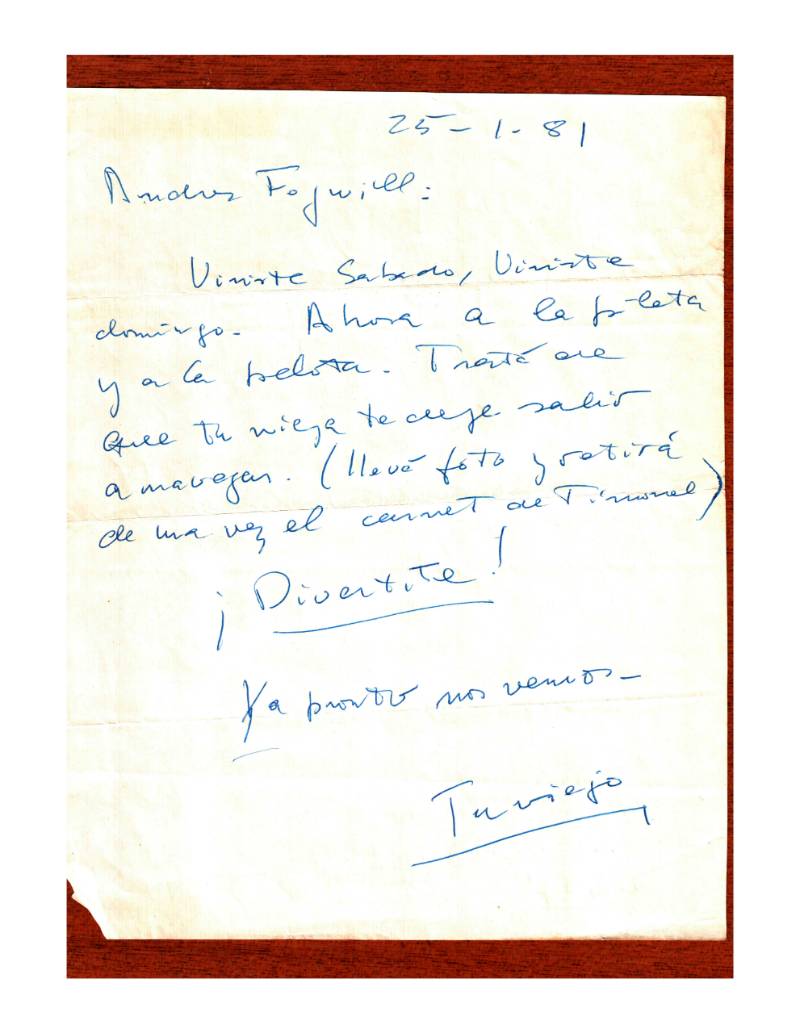 25-1-81
Andres Fogwill:
Viniste Sabado, Viniste
domingo. Ahora a la pileta
y a la pelota. Tratá de
que tu vieja te deje salir
a navegar. (llevá foto y retirá
de una vez el carnet de Timonel)
¡Divertite!
Ya pronto nos vemos-
Tu viejo